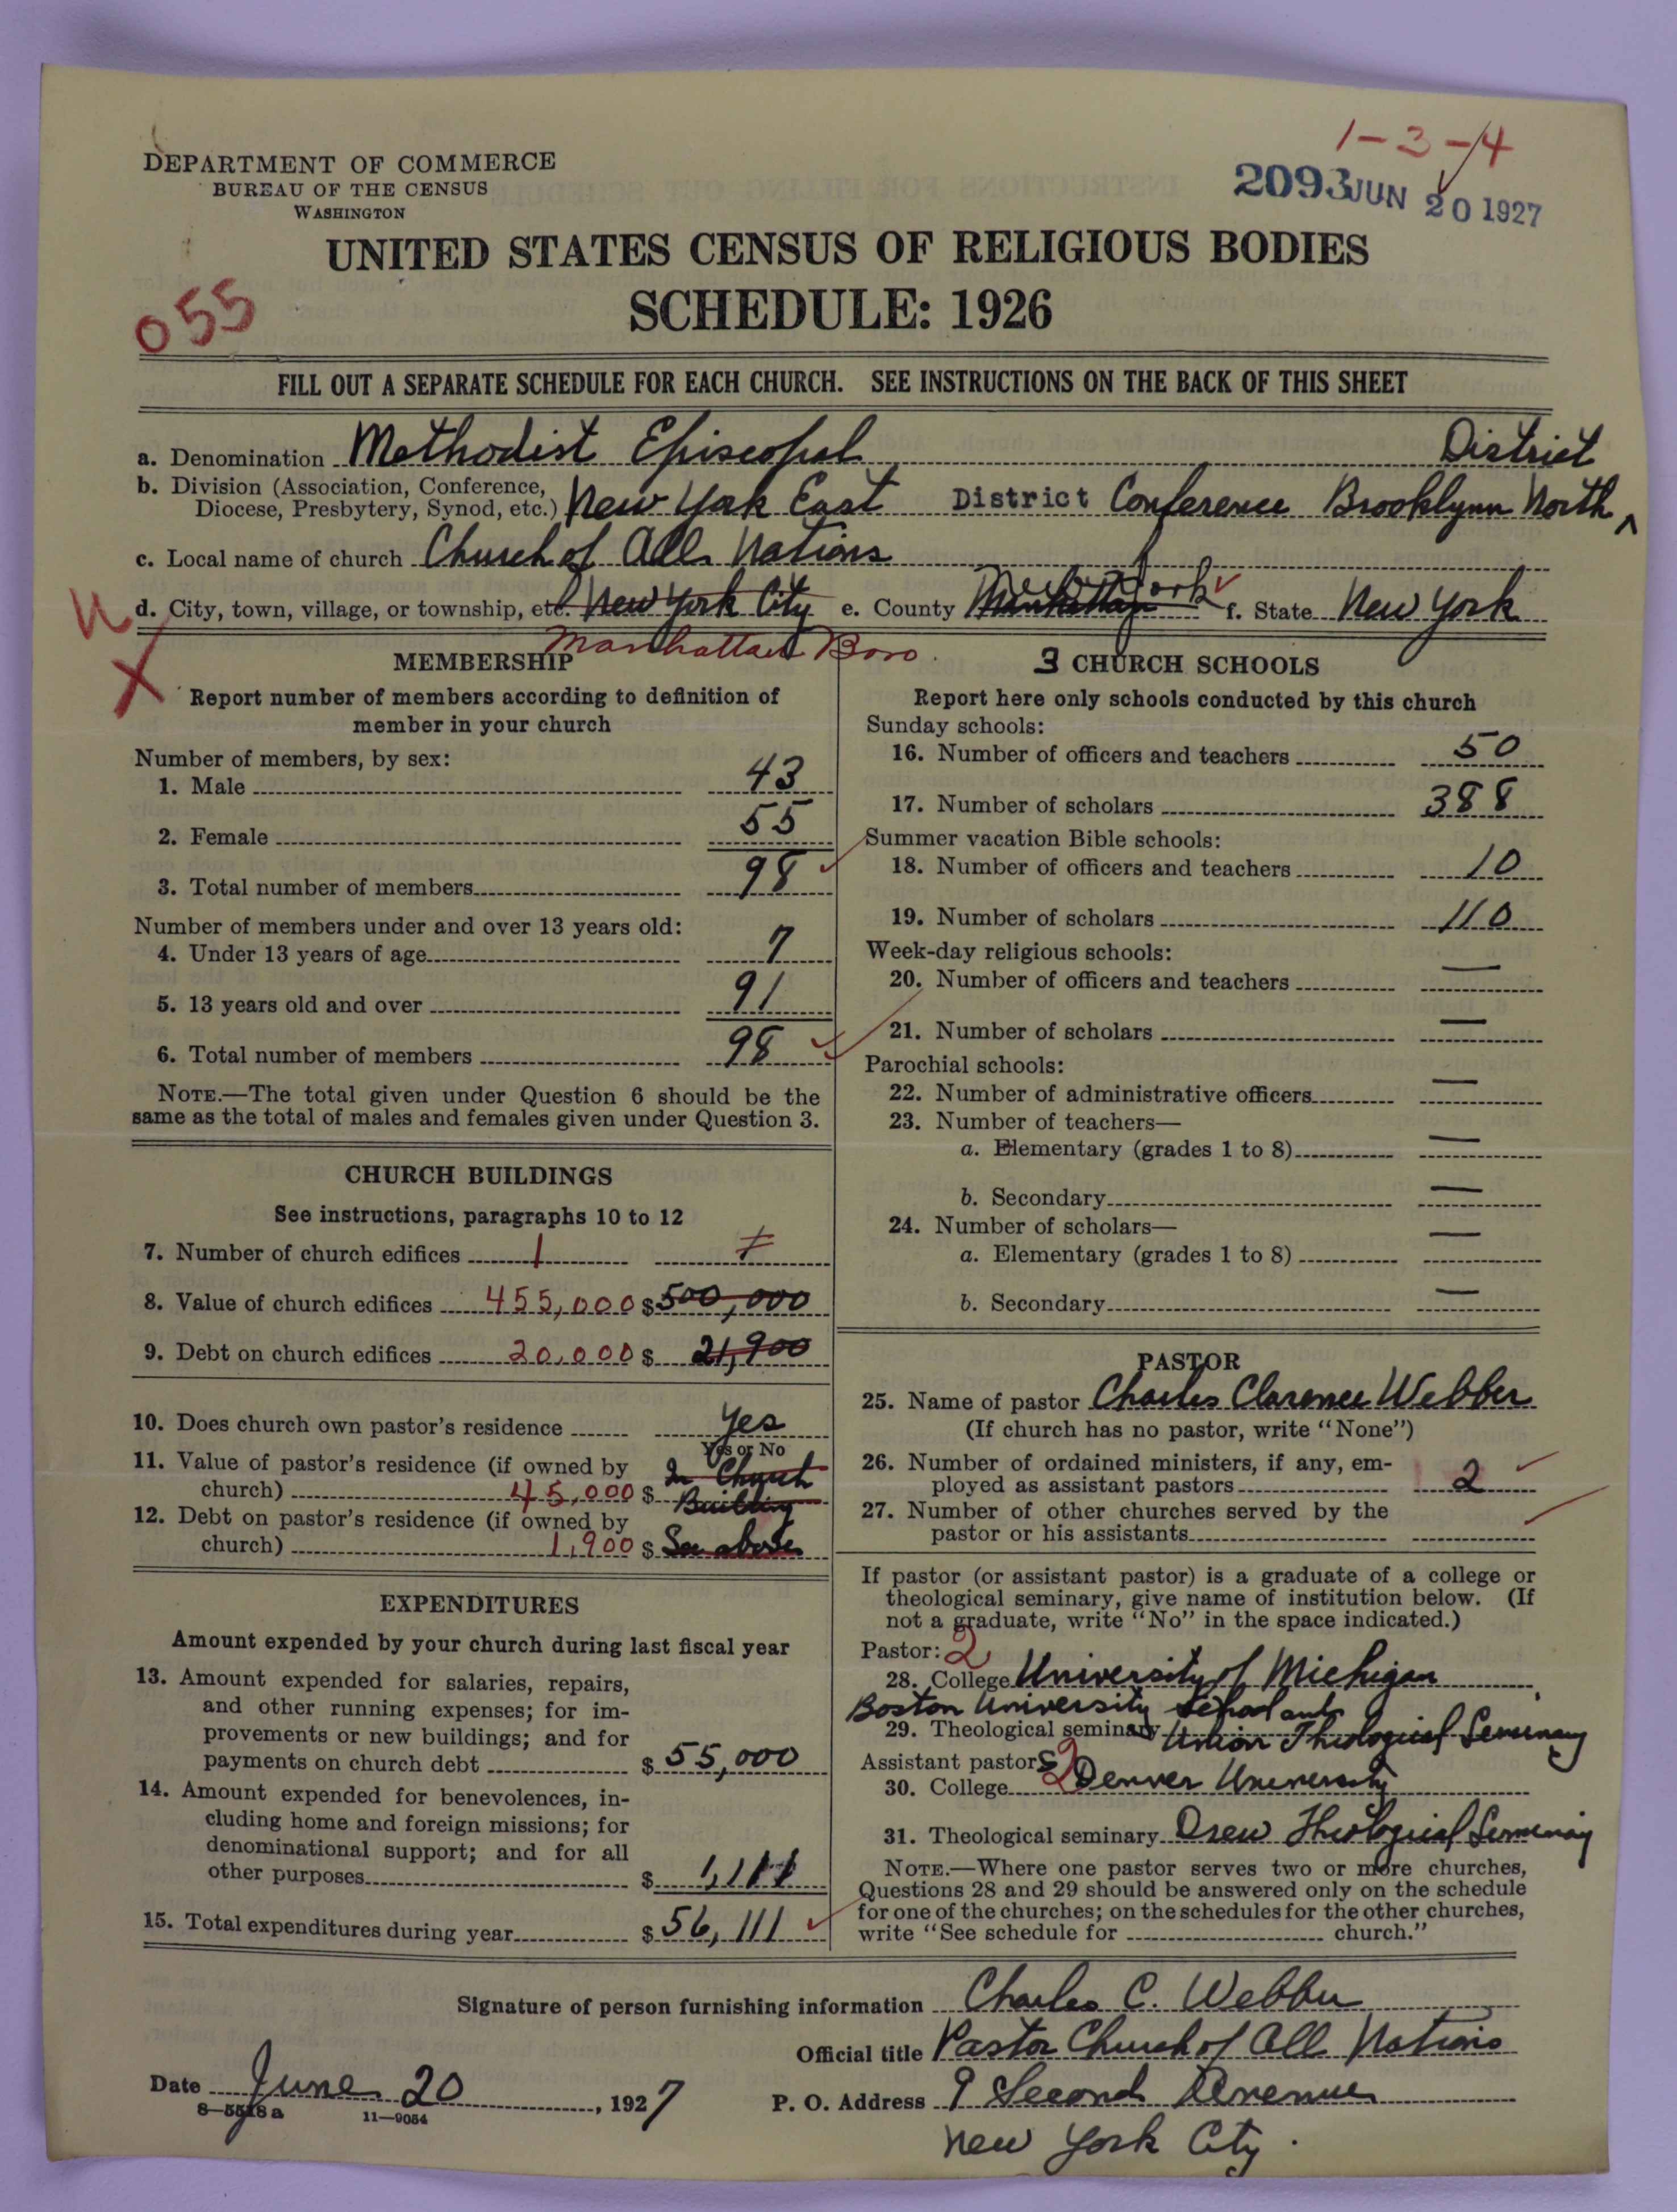 1-3-4
DEPARTMENT OF COMMERCE
BUREAU OF THE CENSUS
WASHINGTON
2093 JUN 20 1927
UNITED STATES CENSUS OF RELIGIOUS BODIES
SCHEDULE: 1926
055
FILL OUT A SEPARATE SCHEDULE FOR EACH CHURCH. SEE INSTRUCTIONS ON THE BACK OF THIS SHEET
a. Denomination Methodist Episcopal District
b. Division (Association, Conference,
Diocese, Presbytery, Synod, etc.) New York East District Conference Brooklynn North
c. Local name of church Church of All Nations
d. City, town, village, or township, etc. New York City e. County Manhattan New York f. State New York
Manhattan Boro
MEMBERSHIP
Report number of members according to definition of
member in your church
Number of members, by sex:
1. Male 43
2. Female 55
3. Total number of members 98
Number of members under and over 13 years old:
4. Under 13 years of age 7
5. 13 years old and over 91
6. Total number of members 98
NOTE.—The total given under Question 6 should be the
same as the total of males and females given under Question 3.
CHURCH BUILDINGS
See instructions, paragraphs 10 to 12
7. Number of church edifices 1 1
8. Value of church edifices 455,000 $ 500,000
9. Debt on church edifices 20,000 $ 21,900
10. Does church own pastor's residence Yes
Yes or No
11. Value of pastor's residence (if owned by In Church
church) 45,000 $ Building
12. Debt on pastor's residence (if owned by
church) 1,900 $ See above
EXPENDITURES
Amount expended by your church during last fiscal year
13. Amount expended for salaries, repairs,
and other running expenses; for im-
provements or new buildings; and for
payments on church debt $ 55,000
14. Amount expended for benevolences, in-
cluding home and foreign missions; for
denominational support; and for all
other purposes $ 1,111
15. Total expenditures during year $ 56,111
3 CHURCH SCHOOLS
Report here only schools conducted by this church
Sunday schools:
16. Number of officers and teachers 50
17. Number of scholars 388
Summer vacation Bible schools:
18. Number of officers and teachers 10
19. Number of scholars 110
Week-day religious schools:
20. Number of officers and teachers —
21. Number of scholars —
Parochial schools:
22. Number of administrative officers —
23. Number of teachers—
a. Elementary (grades 1 to 8) —
b. Secondary —
24. Number of scholars—
a. Elementary (grades 1 to 8) —
b. Secondary —
PASTOR
25. Name of pastor Charles Clarence Webber
(If church has no pastor, write "None")
26. Number of ordained ministers, if any, em-
ployed as assistant pastors 2
27. Number of other churches served by the
pastor or his assistants
If pastor (or assistant pastor) is a graduate of a college or
theological seminary, give name of institution below. (If
not a graduate, write "No" in the space indicated.)
Pastor: 2
28. College University of Michigan
Boston University School and
29. Theological seminary Union Theological Seminary
Assistant pastors 2
30. College Denver University
31. Theological seminary Drew Theological Seminary
NOTE.—Where one pastor serves two or more churches,
Questions 28 and 29 should be answered only on the schedule
for one of the churches; on the schedules for the other churches,
write "See schedule for church."
Signature of person furnishing information Charles C. Webber
Official title Pastor Church of All Nations
Date June 20, 1927 P. O. Address 9 Second Avenue
8—5518a 11—9054
New York City.